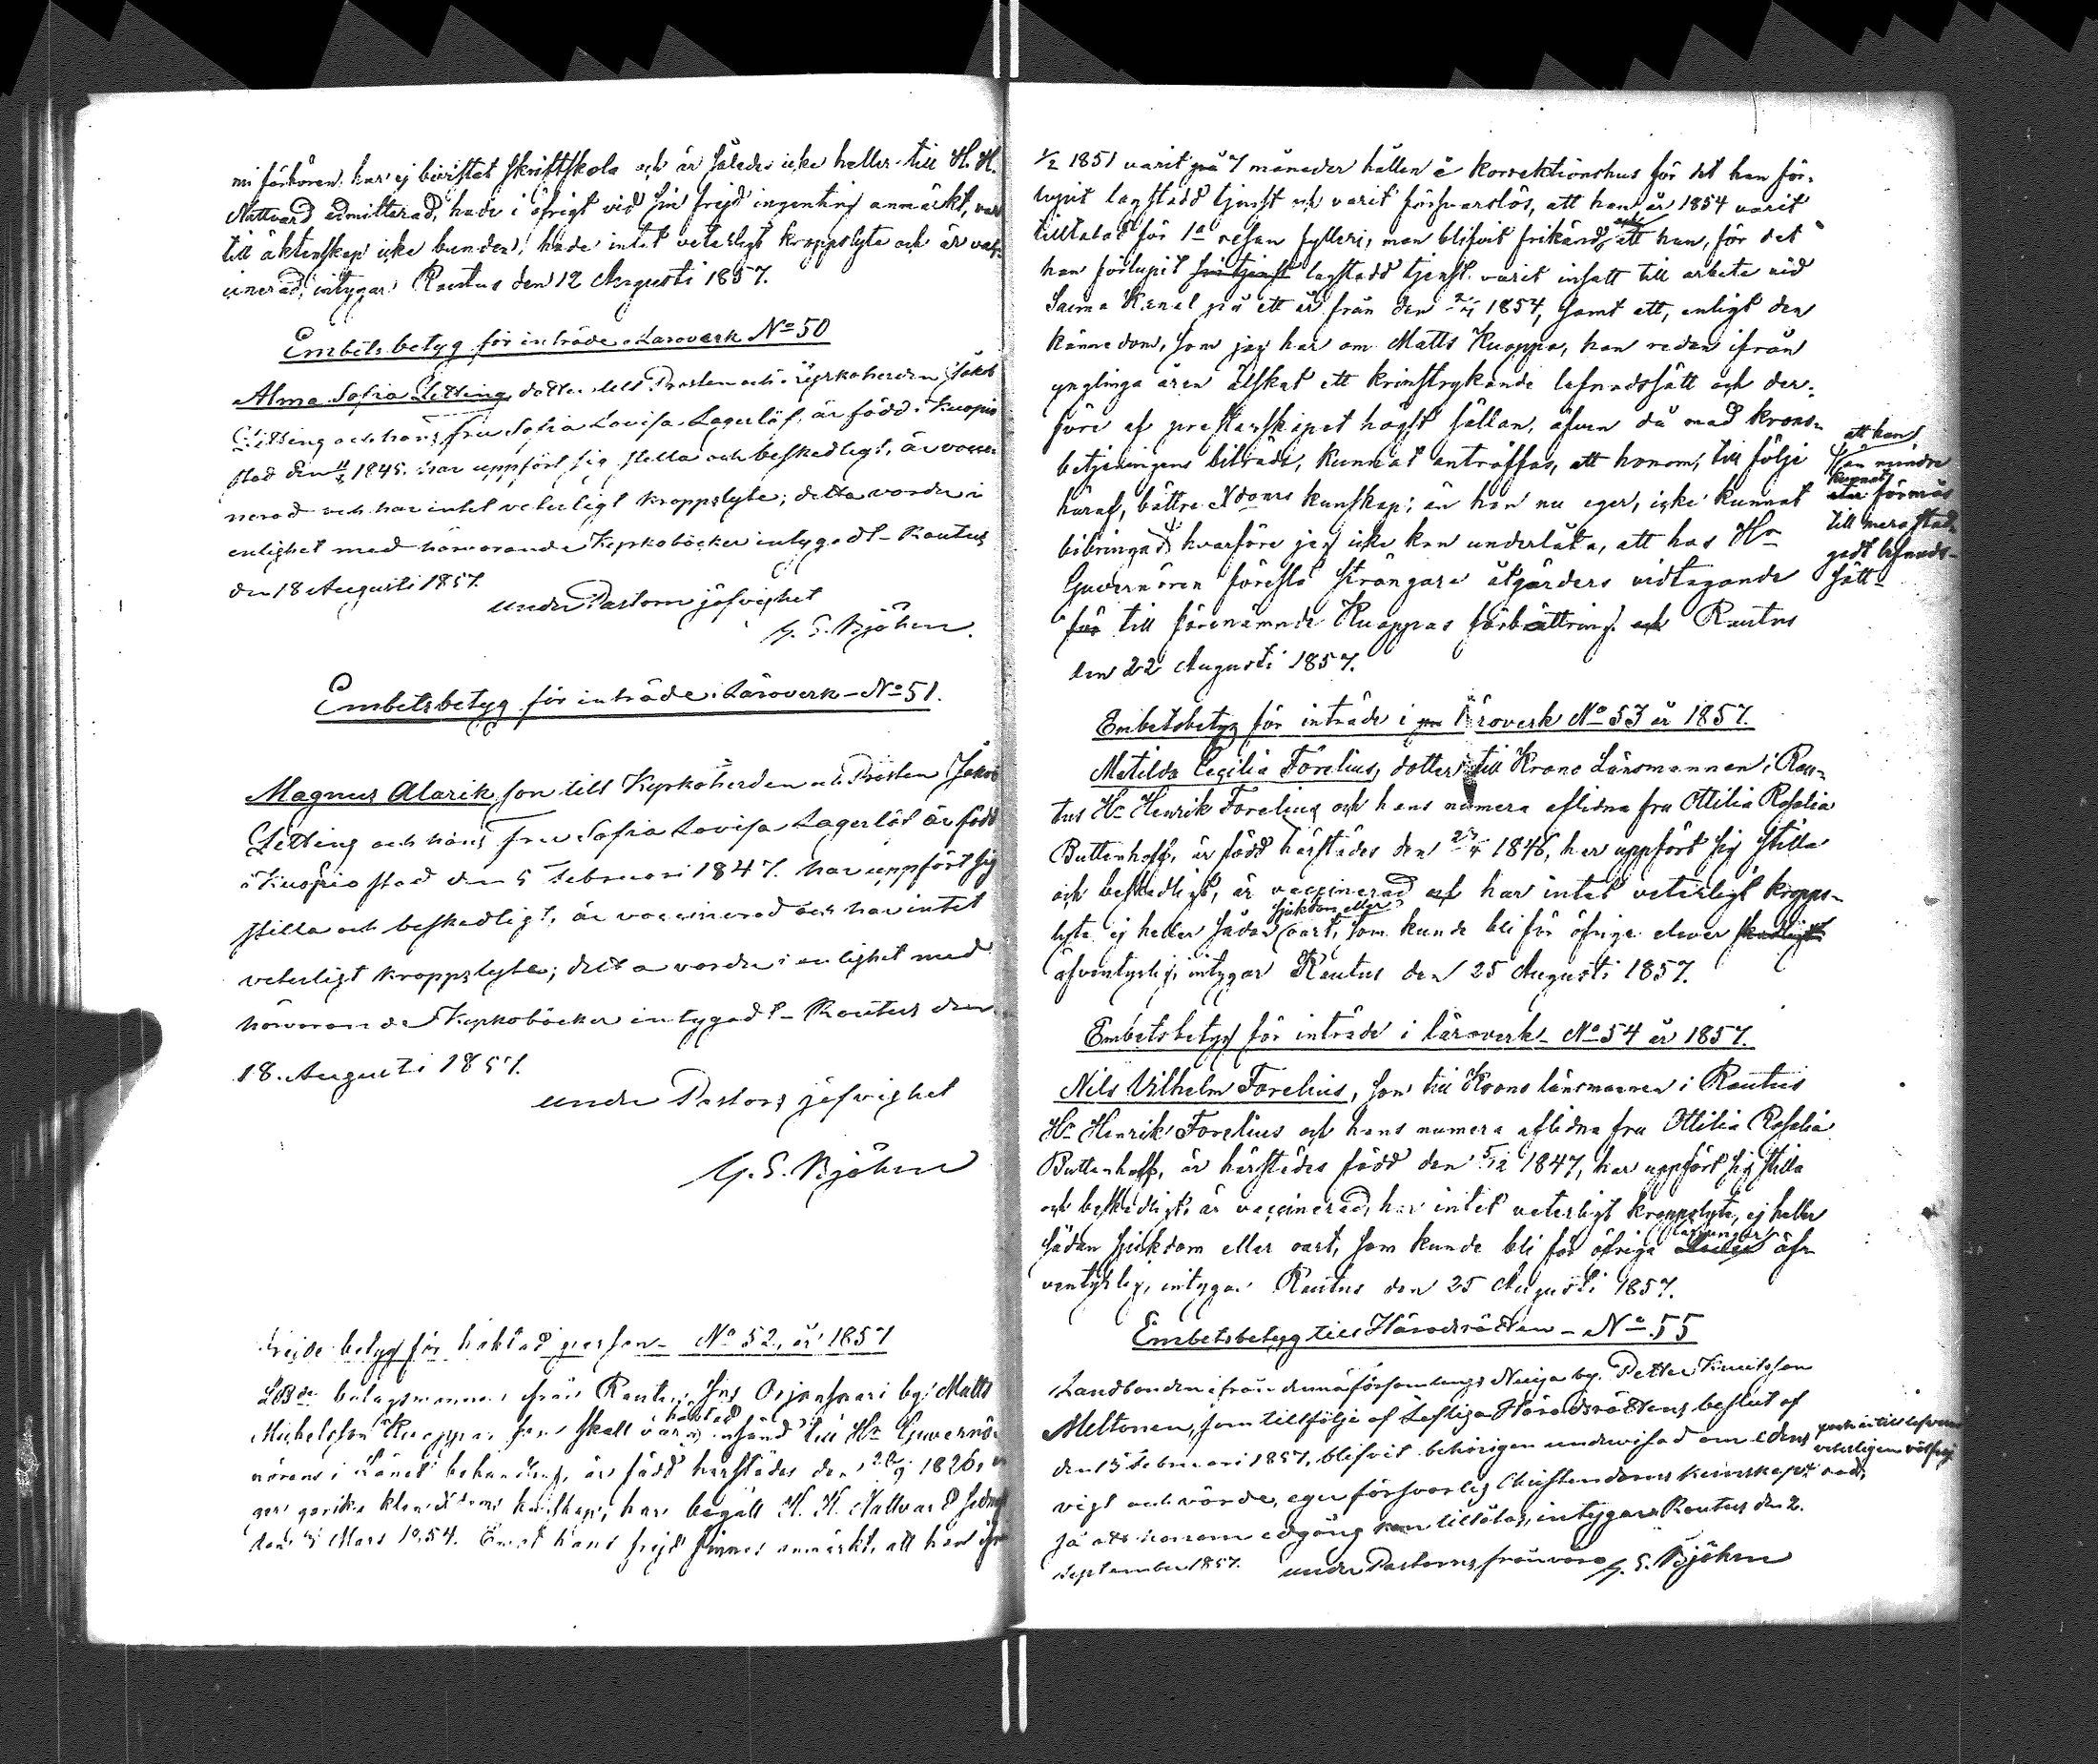 mi förhören har ej bivistat skriftskola och är således icke heller till H. H.
Nattvard admitterad, hade i öfrigt vid sin frejd ingenting anmärkt, var
till äktenskap icke bunden, hade intet veterligt kroppslyte och är vac-
cinerad, intygar Rautus den 12 Augusti 1857.
Embetsbetyg för inträde i Läroverk No 50
Alma Sofia Zitting, dotter till Prosten och Kyrkoherden Jakob
Zitting och hans fru Sofia Lovisa Lagerlöf, är född i Kuopio
stad den 1845. har uppfört sig stilla och beskedligt, är vacci-
nerad och har intet veterligt kroppslyte; detta varder i
enlighet med härvarande Kyrkoböcker intygadt - Rautus
den 18 Augusti 1857.
under Pastorns jäfvighet
G. E. Björkm
Embetsbetyg för inträde i Läroverk - No 51.
Magnus Alarik son till Kyrkoherden och Prosten Jakob
Zitting och hans fru Sofia Lovisa Lagerlöf är född
i Kuopio stad den 5 Februari 1847. har uppfört sig
stilla och beskedligt, är vaccinerad och har intet
veterligt kroppslyte; detta varder i enlighet med
härvarande Kyrkoböcker intygadt - Rautus den
18. Augusti 1857.
under Pastors jäfvighet
G. E. Björkm
Frejde betyg för häktad person - No 52, år 1857
bolagsmannen från Rautus Sns Orjansaari by, Matts
Michelsson Kuoppa, som skall varda häktad insänd till Hr Guvernö-
rörens i Länet behandling, är född härstädes den 1826,
ger ganska klen kunskap, har begått H. H. Nattvard sednast
den Mars 1854. Emot hans frejd finnes anmärkt, att han
1/2 1851 varit på 7 månader hållen å korrektionshus för det han för-
lupit lagstadd tjenst och varit försvarslös, att han år 1854 varit
tilltalad för 1a resan fylleri, men blifvit frikänd, och att han, för det
han förlupit sin tjenst lagstadd tjenst varit insatt till arbete vid
Saima Kanal på ett år från den 1854, samt att, enligt den
kännedom, som jag har om Matts Kuoppa, han redan ifrån
ynglinga åren älskat ett kringstrykande lefnadssätt och der-
före af presterskapet högst sällan, äfven då med krono-
betjeningens biträde, kunnat anträffas, att honom, till följe
häraf, bättre Xdoms kunskap, än han nu eger, icke kunnat
bibringas, hvarföre jag icke kan underlåta, att hos Hr
Guvernören föreslå strängare åtgärders vidtagande
för till förenämnde Kuoppas förbättring. och Rautus
den 22 Augusti 1857.
att han
än mindre
kunnat
förmås
till mera stad-
gadt lefnads-
sätt -
Embetsbetyg för inträde i Läroverk No 53 år 1857.
Matilda Cecilia Forelius, dotter till Krono Länsmannen i Rau-
tus Hr Henrik Forelius och hans numera aflidna fru Ottilia Rosalia
Buttenhoff, är född härstädes den 1846, har uppfört sig stilla
och beskedligt, är vaccinerad och har intet veterligt kropps-
lyte ej heller sådan sjukdom eller oart, som kunde bli för öfriga elever skadligt
äfventyrlig, intygar Rautus den 25 Augusti 1857.
Embetsbetyg för inträde i läroverk - No 54 år 1857.
Nils Vilhelm Forelius, son till Krono länsmannen i Rautus
Hr Henrik Forelius och hans numera aflidna fru Ottilia Rosalia
Buttenhoff, är härstädes född den 5/12 1847, har uppfört sig stilla
och beskedligt, är vaccinerad, har intet veterligt kroppslyte, ej heller
sådan sjukdom eller oart, som kunde bli för öfriga lärjungar äf-
ventyrlig, intygar Rautus den 25 Augusti 1857.
Embetsbetyg till Häradsrätten - No 55
Landbonden ifrån denna församlings Nuija by, Petter Knutsson
Meltonen, som till följe af Lofliga Häradsrättens beslut af
den 13 Februari 1857, blifvit behörigen undervisad om edens
vigt och värde, eger försvarlig Christendoms kunskap
så att honom edgång kan tillåtas, intygar Rautus den 2.
September 1857. under Pastorns frånvaro G. E. Björkm
och är till lefverne
veterligen välfrej-
dad,